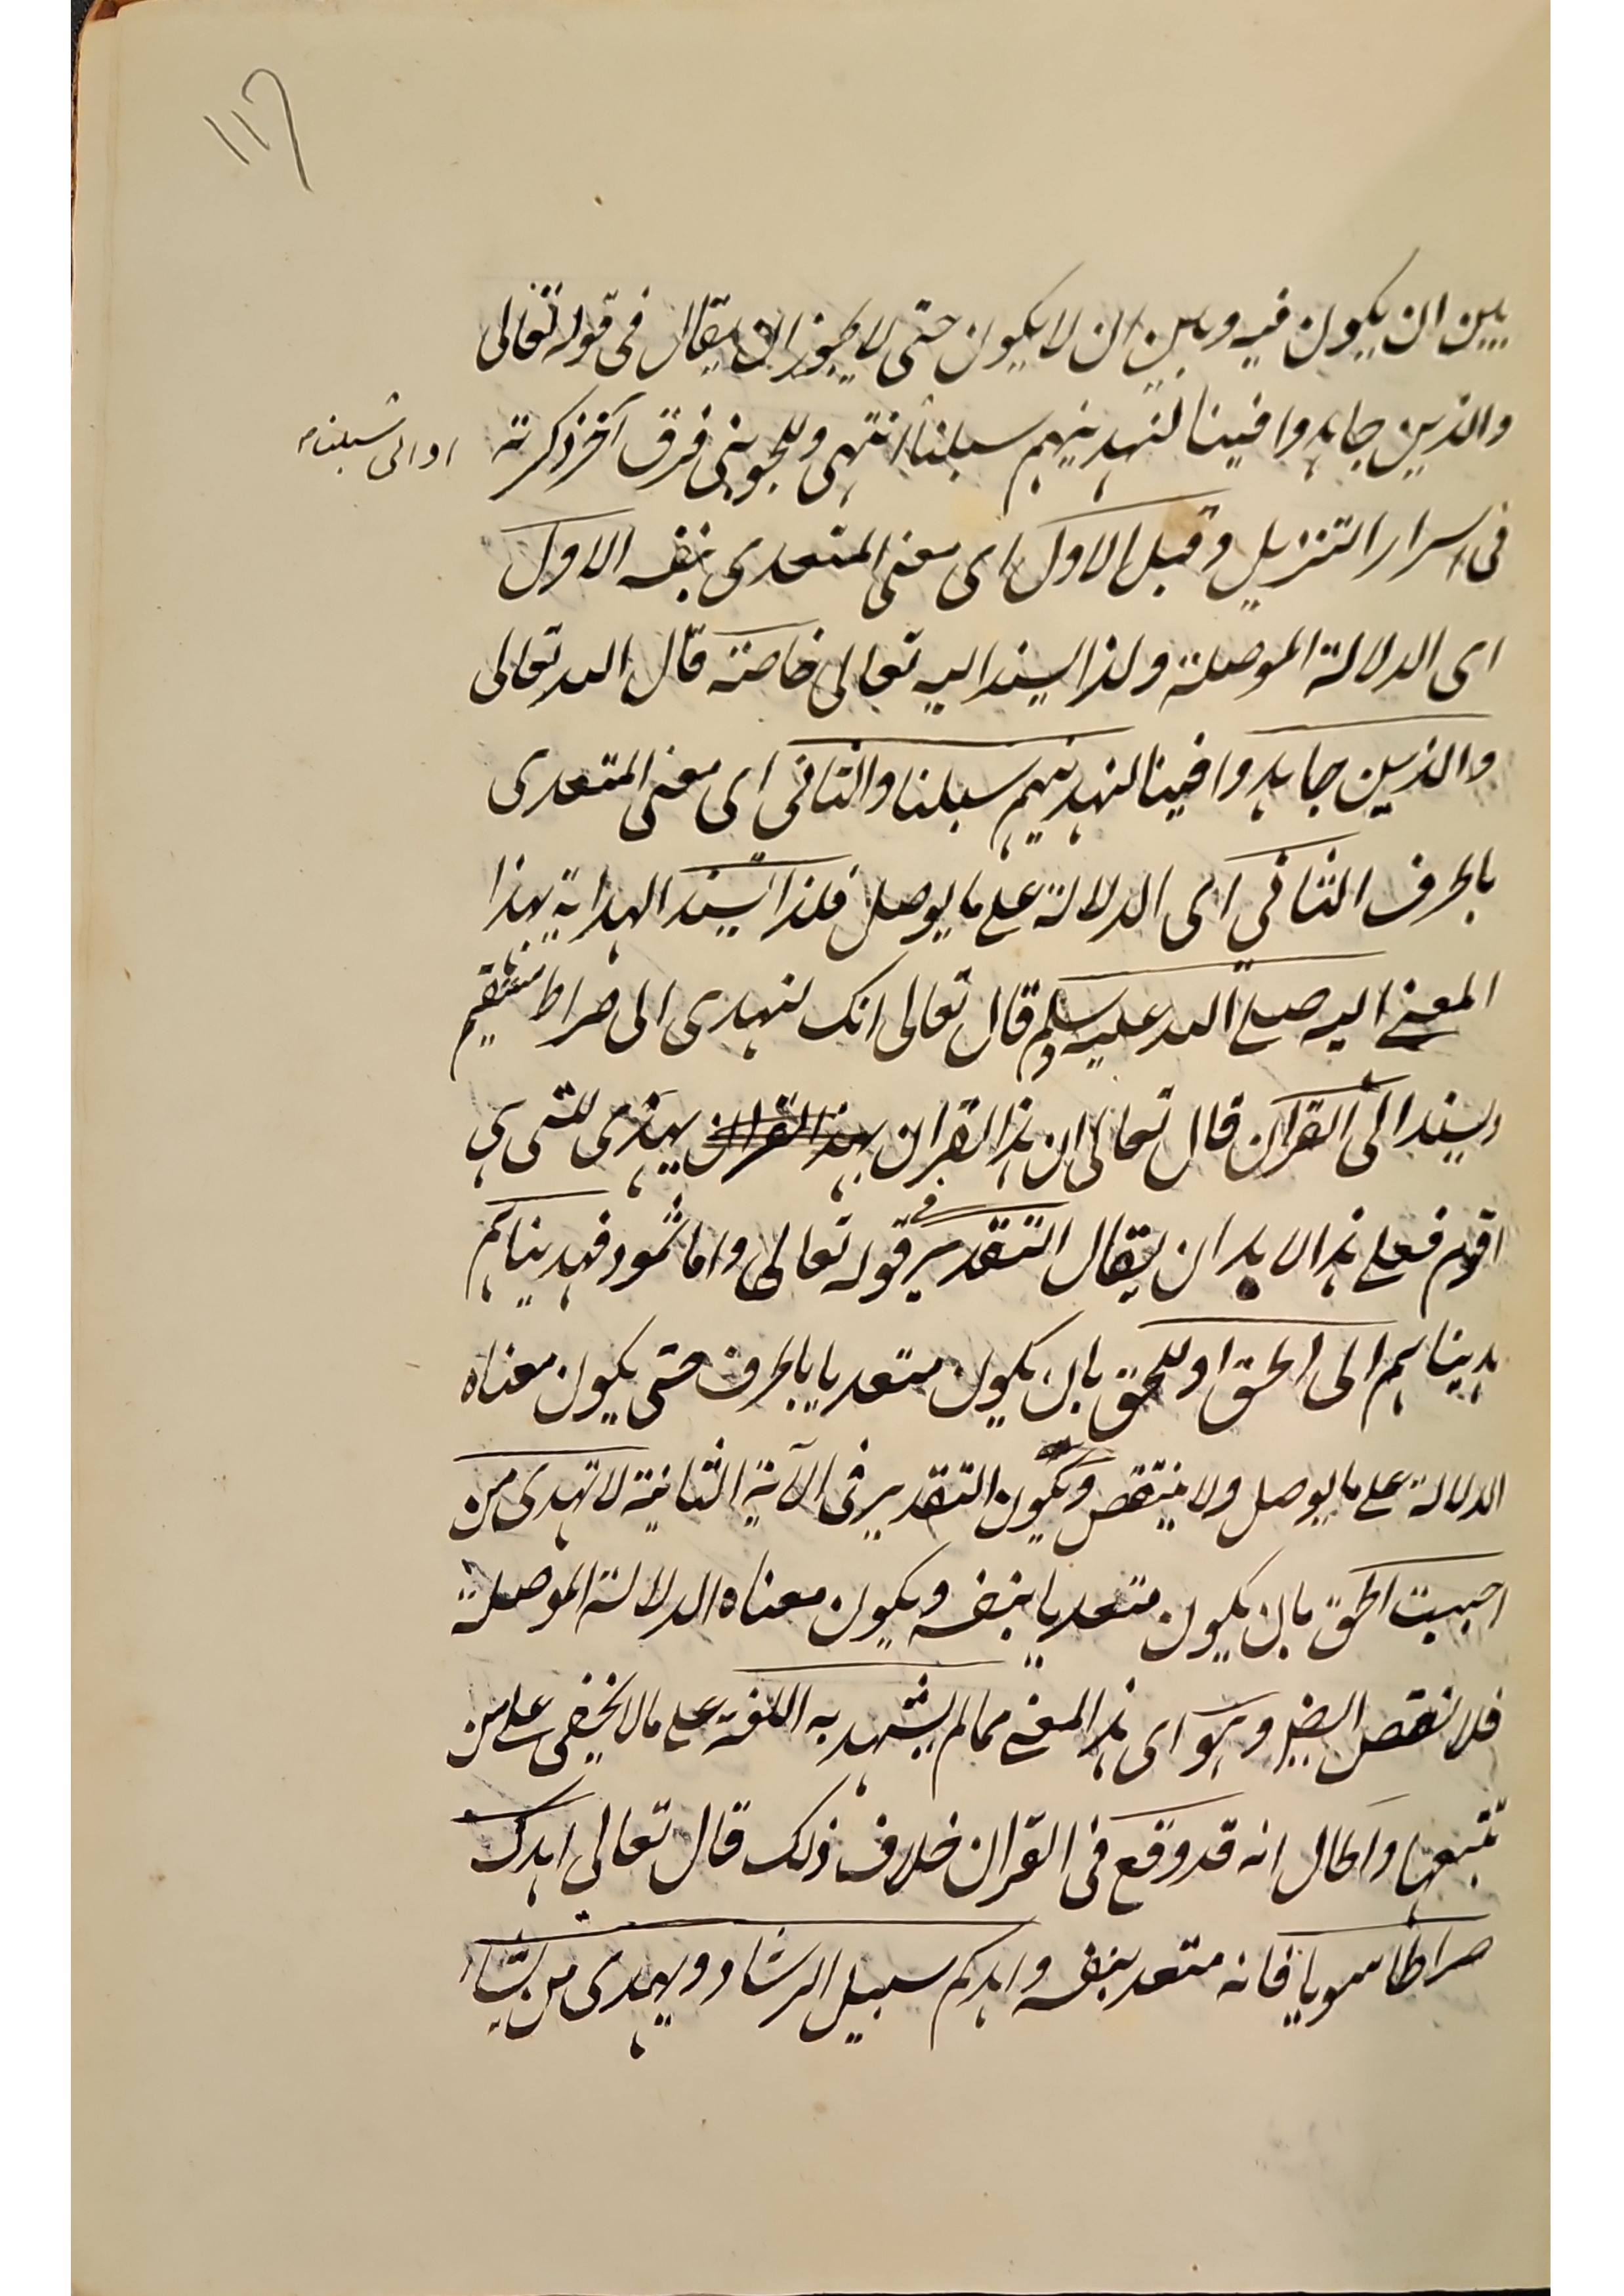 ١١٢
بين ان يكون فيه وبين ان لا يكون حتى لا يجوز ان يقال فى قوله تعالى
والذين جاهدوا فينا لنهدينهم سبلنا انتهى وللجوينى فرق آخر ذكرته
او الى سبلنا
فى اسرار التنزيل وقيل الاول اى معنى المتعدى بنفسه الاول
اى الدلالة الموصلة ولذا يسند اليه تعالى خاصة قال الله تعالى
والذين جاهدوا فينا لنهدينهم سبلنا والثانى اى معنى المتعدى
بالحرف الثانى اى الدلالة على ما يوصل فلذا يسند الهداية بهذا
المعنى اليه صلى الله عليه وسلم قال تعالى انك لتهدى الى صراط مستقيم
ويسند الى القرآن قال تعالى ان هذا القران بهذا القران يهدى للتى هى
اقوم فعلى هذا لا بد ان يقال التقدير فى قوله تعالى واما ثمود فهديناهم
هديناهم الى الحق او للحق بان يكون متعديا بالحرف حتى يكون معناه
الدلالة على ما يوصل ولا ينتقض ويكون التقدير فى الآية الثانية لا تهدى من
احببت الحق بان يكون متعديا بنفسه ويكون معناه الدلالة الموصلة
فلا نقض ايضا وهو اى هذا المعنى مما لم يشهد به اللغة على ما لا يخفى على من
تتبعها والحال انه قد وقع فى القران خلاف ذلك قال تعالى اهدك
صراطا سويا فانه متعد بنفسه واهدكم سبيل الرشاد ويهدى من يشاء